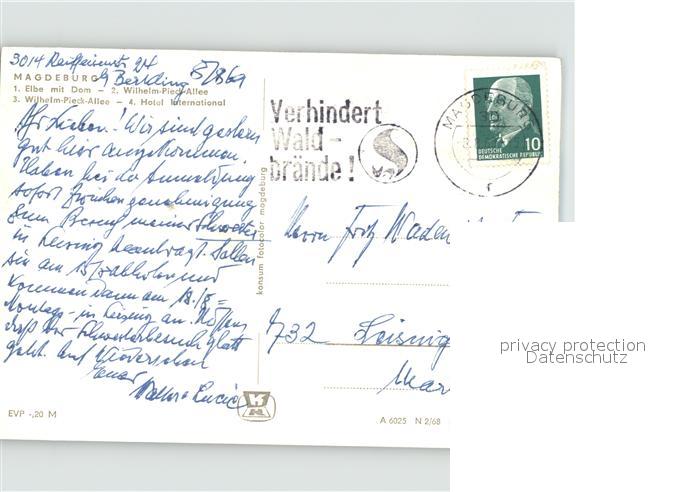 3014 Reiffeisenstr 24
MAGDEBURG
8/8 69
1. Elbe mit Dom – 2. Wilhelm-Pieck-Allee
3. Wilhelm-Pieck-Allee – 4. Hotel International
Ihr Lieben! Wir sind gestern
gut hier angekommen.
Haben bei der Anmeldung
sofort
zum Besuch meiner Schwester
in Leisnig beantragt. Sollen
sie am 15/ abholen und
kommen dann am 18./8 =
Montag - in Leisnig an. Hoffen
daß der Schwesterbesuch glatt
geht. Auf Wiedersehen
Euer
Walter + Lucie
EVP -,20 M
konsum fotocolor magdeburg
Verhindert
Wald-
brände!
MAGDEBURG
10
DEUTSCHE
DEMOKRATISCHE REPUBLIK
Herrn Fritz
732 Leisnig
A 6025 N 2/68
privacy protection
Datenschutz